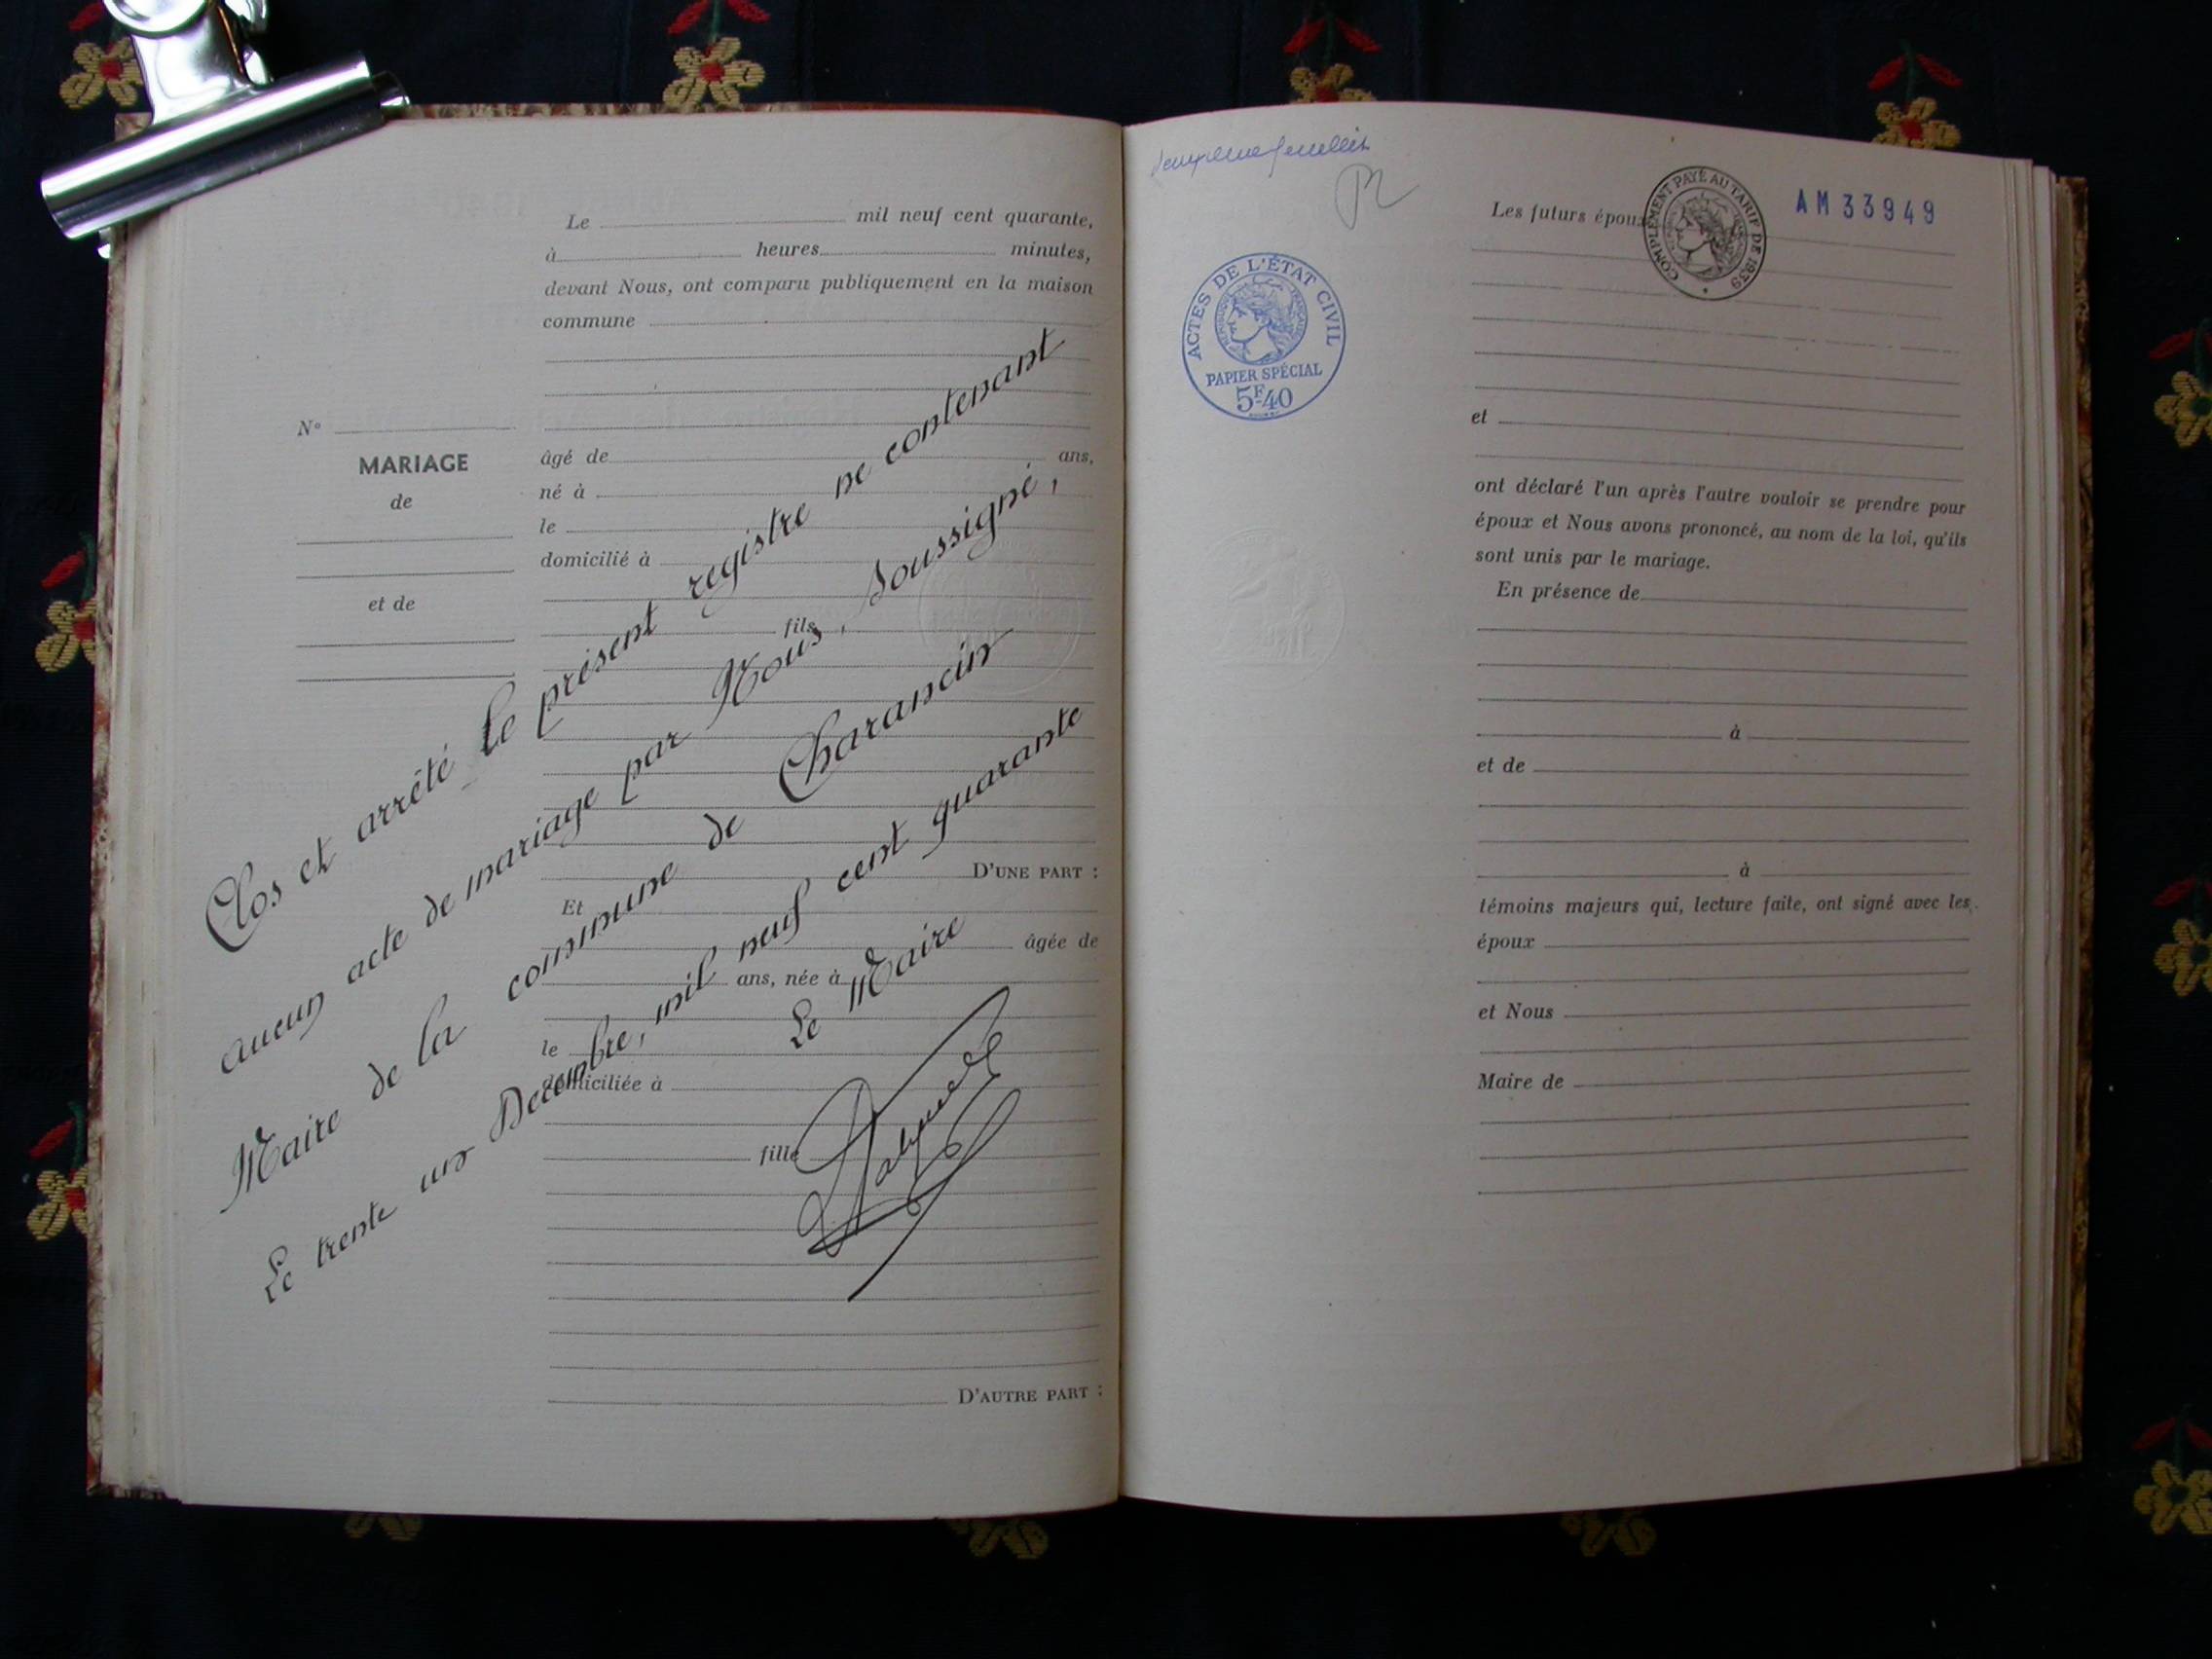 Le mil neuf cent quarante,
à heures minutes,
devant Nous, ont comparu publiquement en la maison
commune
N°
MARIAGE
de
et de
âgé de ans,
né à
le
domicilié à
fils
D'UNE PART :
Et
âgée de
ans, née à
le
domiciliée à
fille
D'AUTRE PART :
Clos et arrêté le présent registre ne contenant
aucun acte de mariage par Nous, Soussigné,
Maire de la commune de Charancin
Le trente un Decembre, mil neuf cent quarante
Le Maire
deuxième feuillet
ACTES DE L'ÉTAT CIVIL
RÉPUBLIQUE FRANÇAISE
PAPIER SPÉCIAL
5F40
COMPLÉMENT PAYÉ AU TARIF DE 1939
AM 33949
Les futurs époux
et
ont déclaré l'un après l'autre vouloir se prendre pour
époux et Nous avons prononcé, au nom de la loi, qu'ils
sont unis par le mariage.
En présence de
à
et de
à
témoins majeurs qui, lecture faite, ont signé avec les
époux
et Nous
Maire de